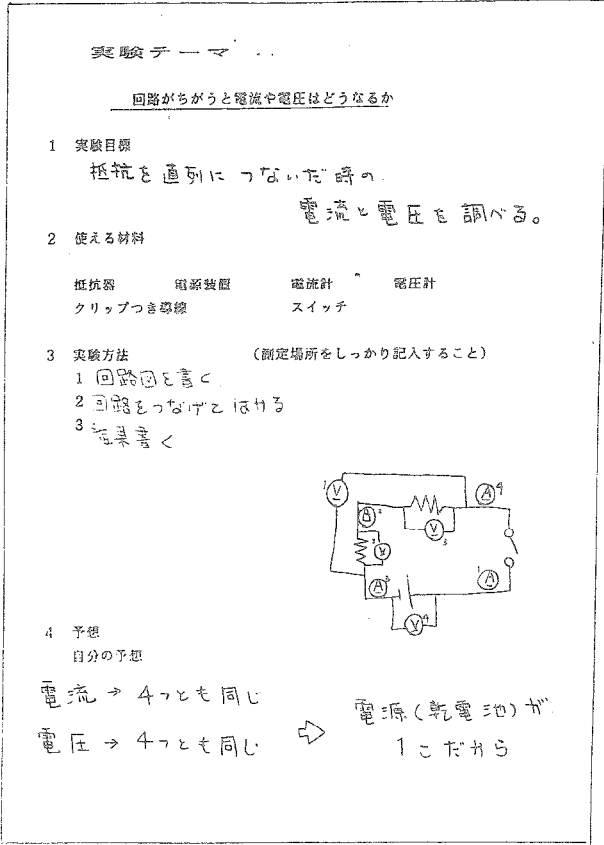 実験テーマ
回路がちがうと電流や電圧はどうなるか
1 実験目標
抵抗を直列につないだ時の
電流と電圧を調べる。
2 使える材料
抵抗器 電源装置 電流計 電圧計
クリップつき導線 スイッチ
3 実験方法 (測定場所をしっかり記入すること)
1 回路図を書く
2 回路をつなげてはかる
3 結果書く
V1
A4
A2
V3
V2
A3
A1
V4
4 予想
自分の予想
電流→4つとも同じ
電圧→4つとも同じ ⇨ 電源(乾電池)が
1こだから